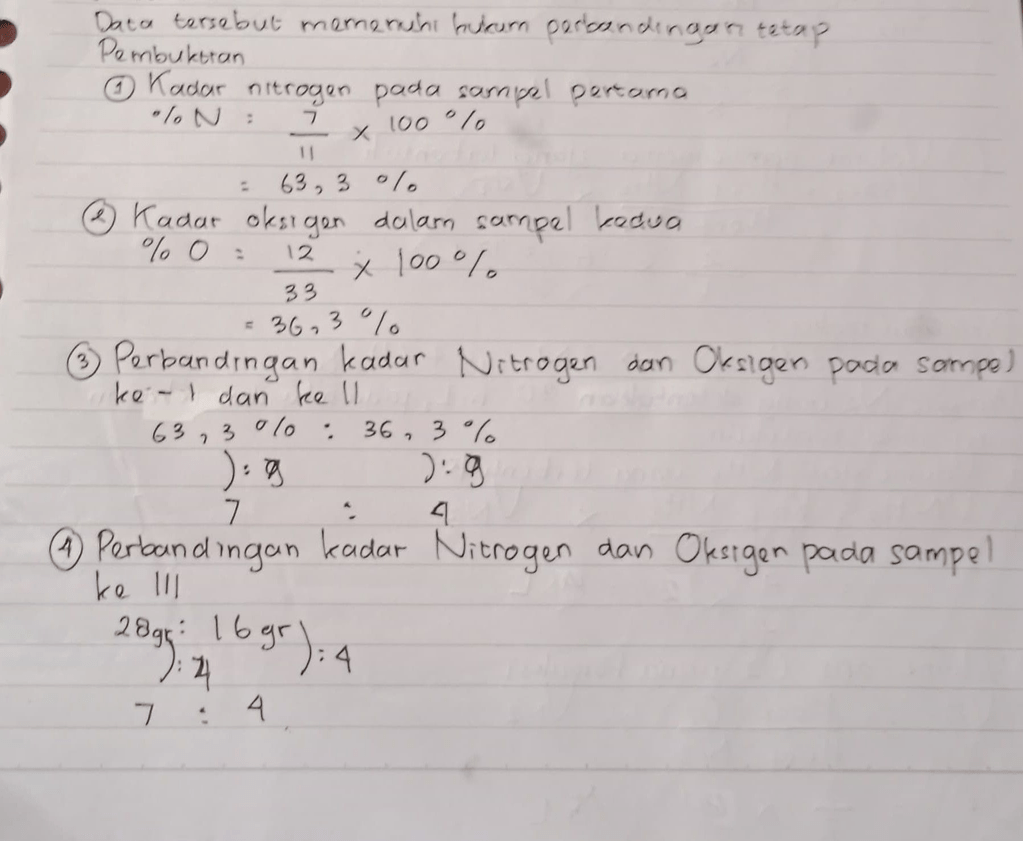 Data tersebut memenuhi hukum perbandingan tetap
Pembuktian
① Kadar nitrogen pada sampel pertama
% N : 7 x 100 %
11
= 63,3 %
② Kadar oksigen dalam sampel kedua
% O = 12 x 100 %
33
= 36,3 %
③ Perbandingan kadar Nitrogen dan Oksigen pada sampel
ke-1 dan ke II
63,3 % : 36,3 %
) : 9 ) : 9
7 : 4
④ Perbandingan kadar Nitrogen dan Oksigen pada sampel
ke III
28gr : 16 gr
) : 4 ) : 4
7 : 4